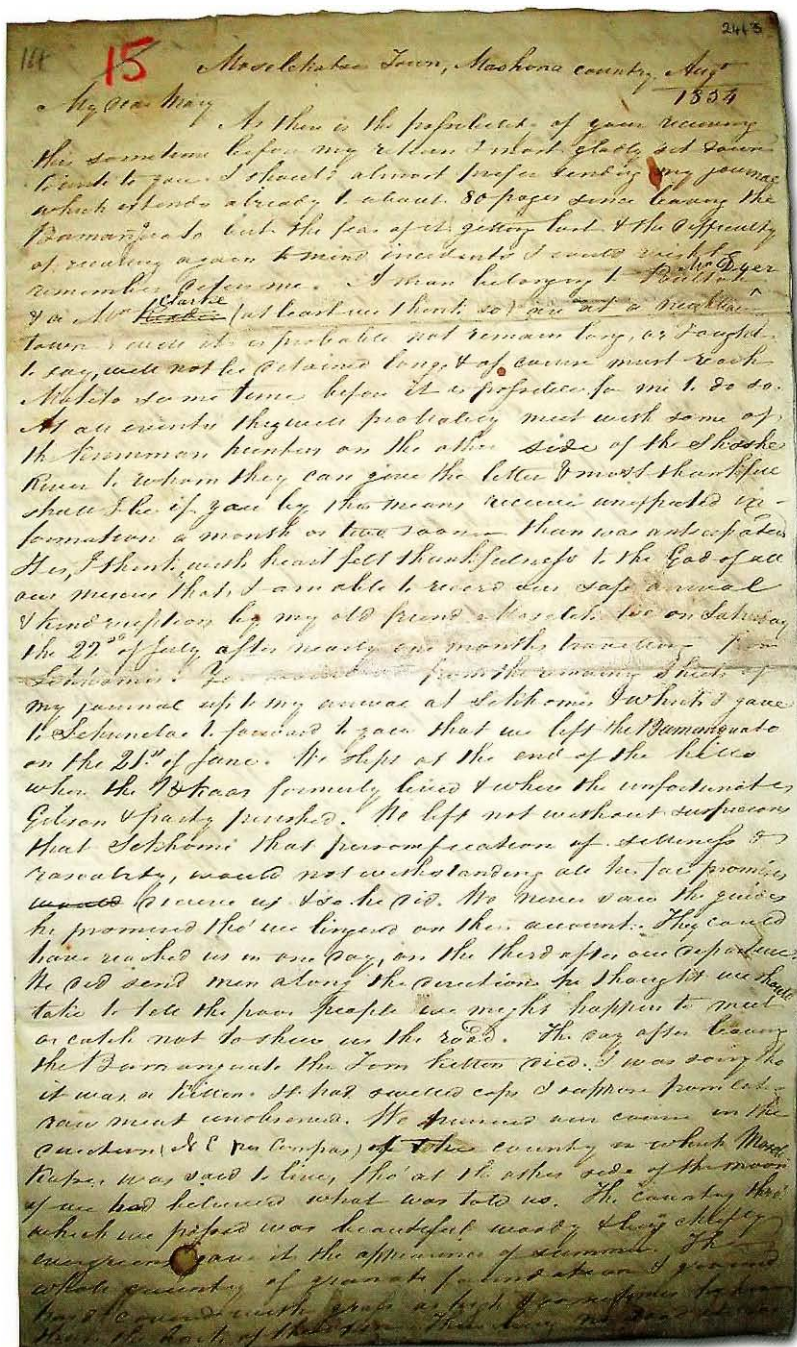 2443
114 15 Moselekatse Town, Mashona country, Augt
1854
My dear Mary
As there is the possibility of your receiving
this sometime before my return I most gladly sit down
to write to you. I should almost prefer sending my journal
which extends already to about 80 pages since leaving the
Bamanguato but the fear of it getting lost & the difficulty
of recalling again to mind incidents I could wish to
remember deters me. A man belonging to Mr Dyer
& a Mr Clarke (at least we think so) are at a
town & will it is probable not remain long, or I ought
to say, will not be detained long, & of course must reach
Motito some time before it is possible for me to do so.
At all events they will probably meet with some of
the Kuruman hunters on the other side of the Shashe
River to whom they can give the letter & most thankful
shall I be if you by this means receive unexpected in-
formation a month or two sooner than was anticipated
It is, I think, with heartfelt thankfulness to the God of all
our mercies that I am able to record our safe arrival
& kind reception by my old friend Moselekatse on Saturday
the 22nd of July after nearly one months travelling from
Sekhomi's. You from the remaining sheets of
my journal up to my arrival at Sekhomis & which I gave
to to forward to you that we left the Bamanguato
on the 21st of June. We slept at the end of the hills
where the formerly lived & where the unfortunate
Gibson & party perished. We left not without suspicions
that Sekhomi that personification of & 
rascality, would not withstanding all his fair promises
would deceive us & so he did. We never saw the guides
he promised tho' we lingered on their account. They could
have reached us in one day, on the third after our departure.
He did send men along the direction he thought we should
take to tell the poor people we might happen to meet
or catch not to shew us the road. The day after leaving
the Bamanguato the Tom kitten died. I was sorry tho'
it was a kitten. It had swelled I suppose from eating
raw meat unobserved. We pursued our course in the
direction (N E per Compas) of the country in which Mosele
katse was said to live, tho' at the other side of the moon
if we had believed what was told us. The country thro'
which we passed was beautiful woody & being chiefly
evergreens gave it the appearance of summer. The
whole country of granite foundation & ground
hard covered with grass as high & sometimes higher
than the back of the oxen. There being no road it was